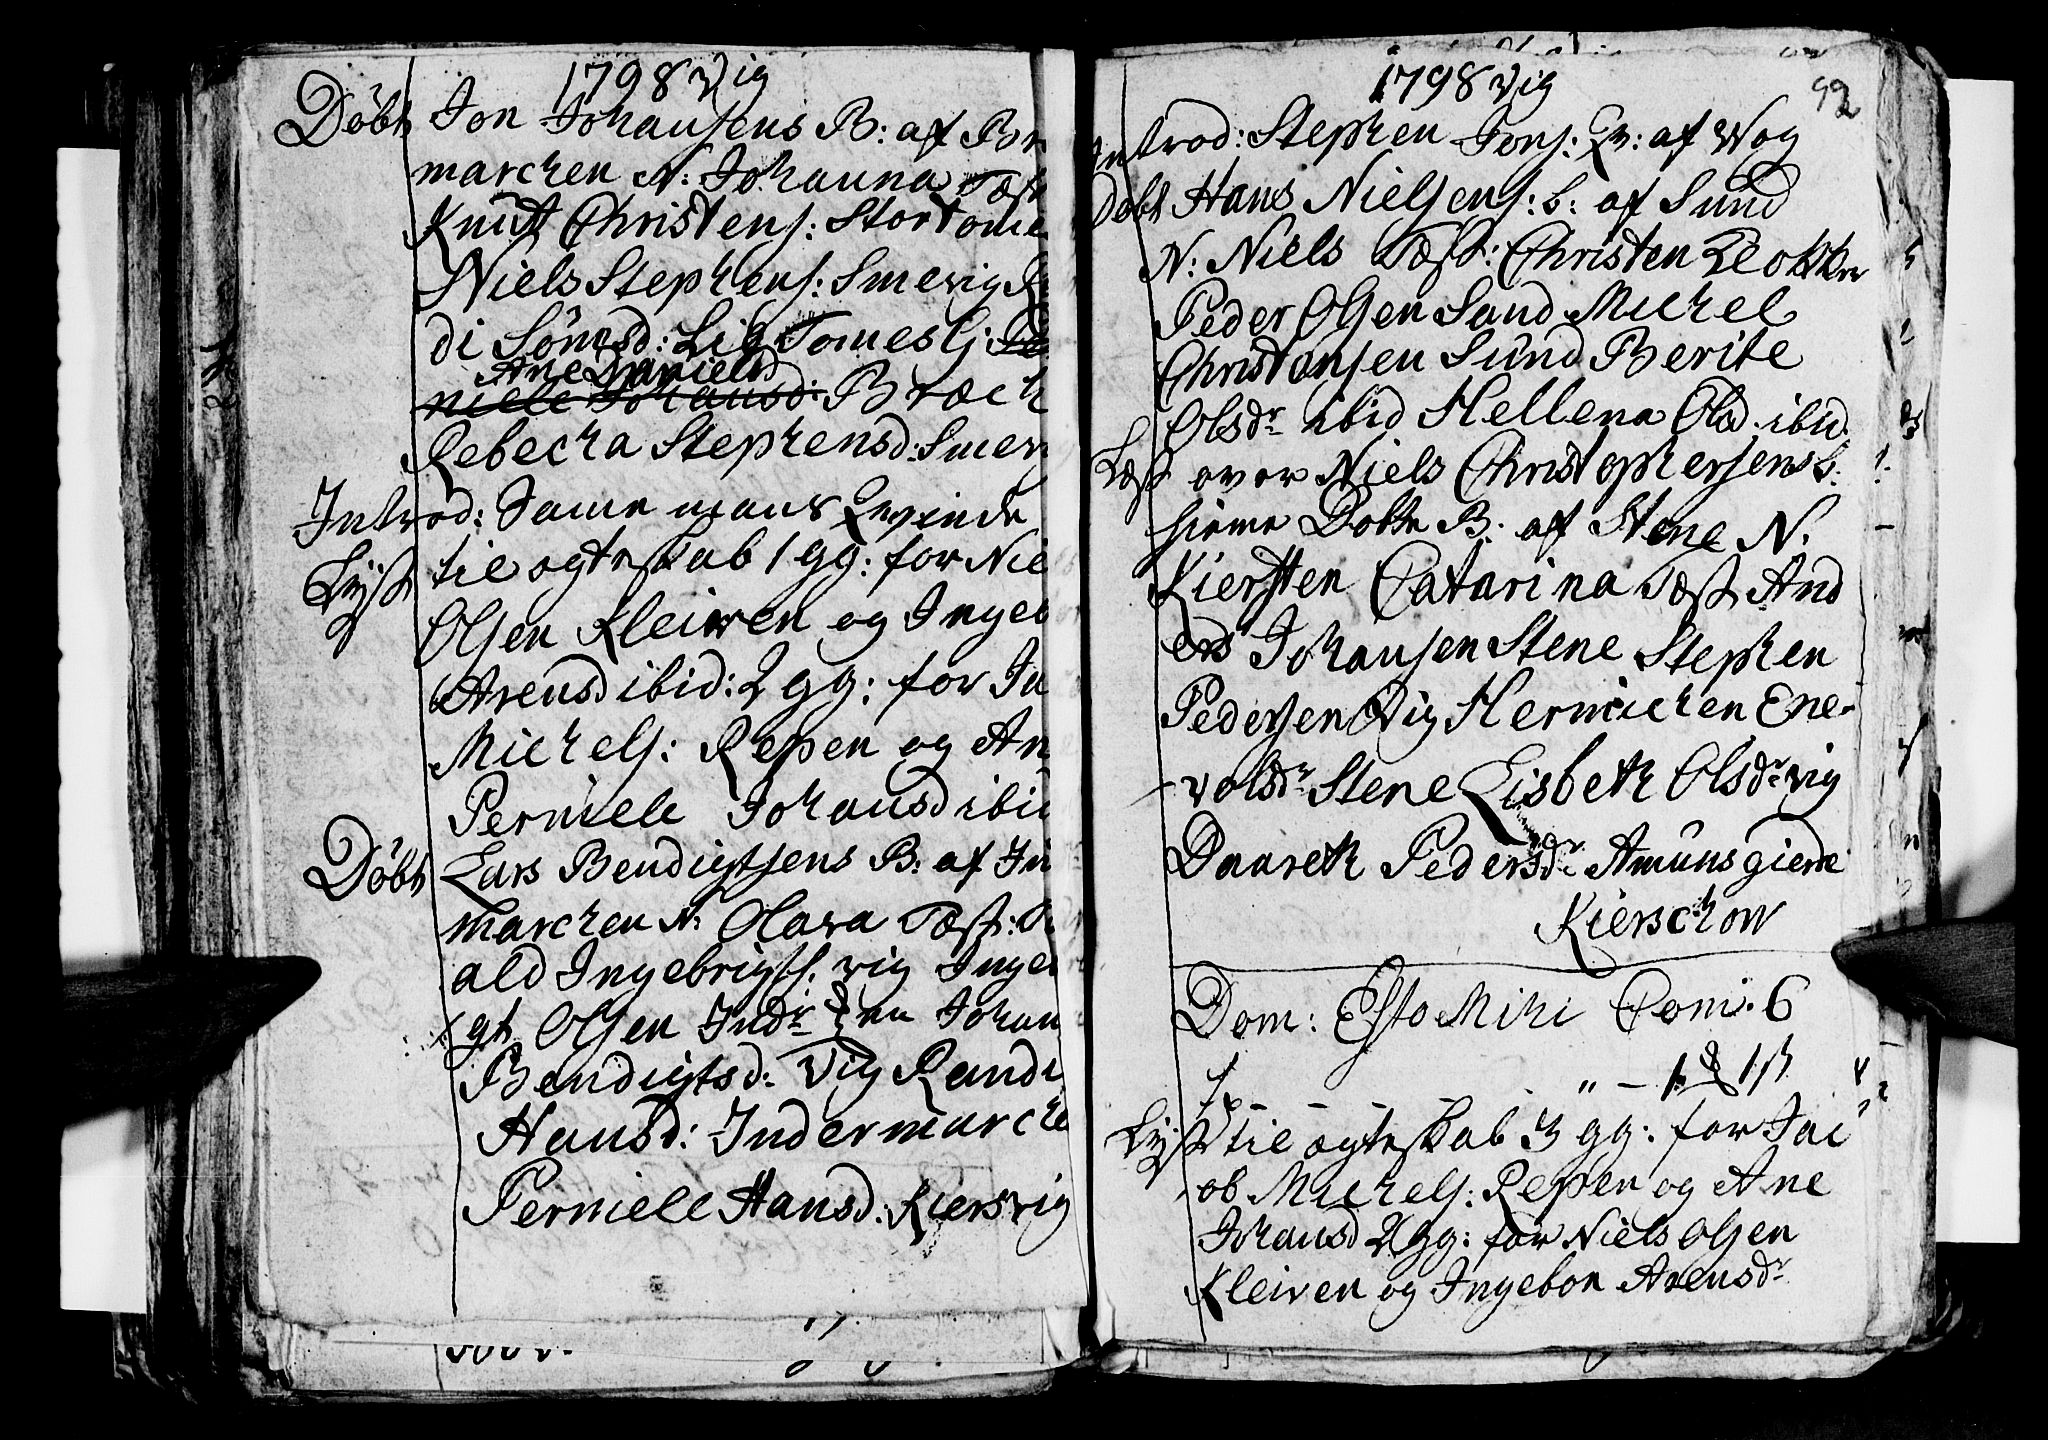 1798 Vig
Döbt Jon Johansens B: af Br
marchen N: Johanna Test
Knut Christens: Stortome
Niels Stephens: Smevig
di Sömsd: Lig Tomeslj:
Ane Daniels
niele Johansd: Bræck
Rebecha Stephensd: Smev
Introd: Same mans Qvinde
Lyst til ogteskab 1 gg: for Nie
Olsen Kleiwen og Ingeb
Arensd ibid: 2 gg: for Ja
Michels: Repen og An
Perniele Johansd ibid
Döbt Lars Bendigtsens B: af In
marchen N: Olava Test:
ald Ingebrigts. vig Inge
gt Olsen Indr Johan
Bendigtsd: Vig Randi
Hansd: Indermarche
Perniele Hansd: Kiersvig
1798 Vig
92
Introd: Stephen Jens: Qv: af Wog
Döbt Hans Nielsens: b: af Sund
N: Niels Test: Christen Klokker
Peder Olsen Sand Michel
Christensen Sund Berite
Olsdr ibid Hellena Olsd. ibid
Lest over Niels Christophersens b.
hieme Dobte B. af Stene N.
Kiersten Catarina Test And
ers Johansen Stene Stephen
Pedersen Vig Hermichen Ene-
volsdr Stene Lisbeth Olsdr vig
Daareth Pedersdr Amunsgierde
Kierschow
Dom: Esto Mihi Com: 6
Lyst til ogteskab 3 gg: for Jac
ob Michels: Repen og Ane
Johansd 2 gg: for Niels Olsen
Kleiven og Ingebor Arensdr